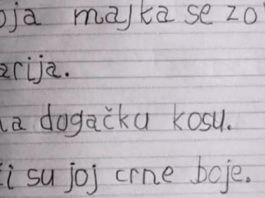 oja majka se zo
arija.
a dogačku kosu.
i su joj crne boje.